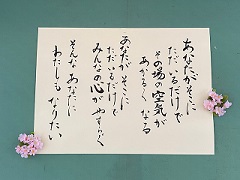 あなたがそこに
ただいるだけで
その場の空気が
あかるくなる
あなたがそこに
ただいるだけで
みんなの心が
やすらぐ
そんなあなたに
わたしもなりたい